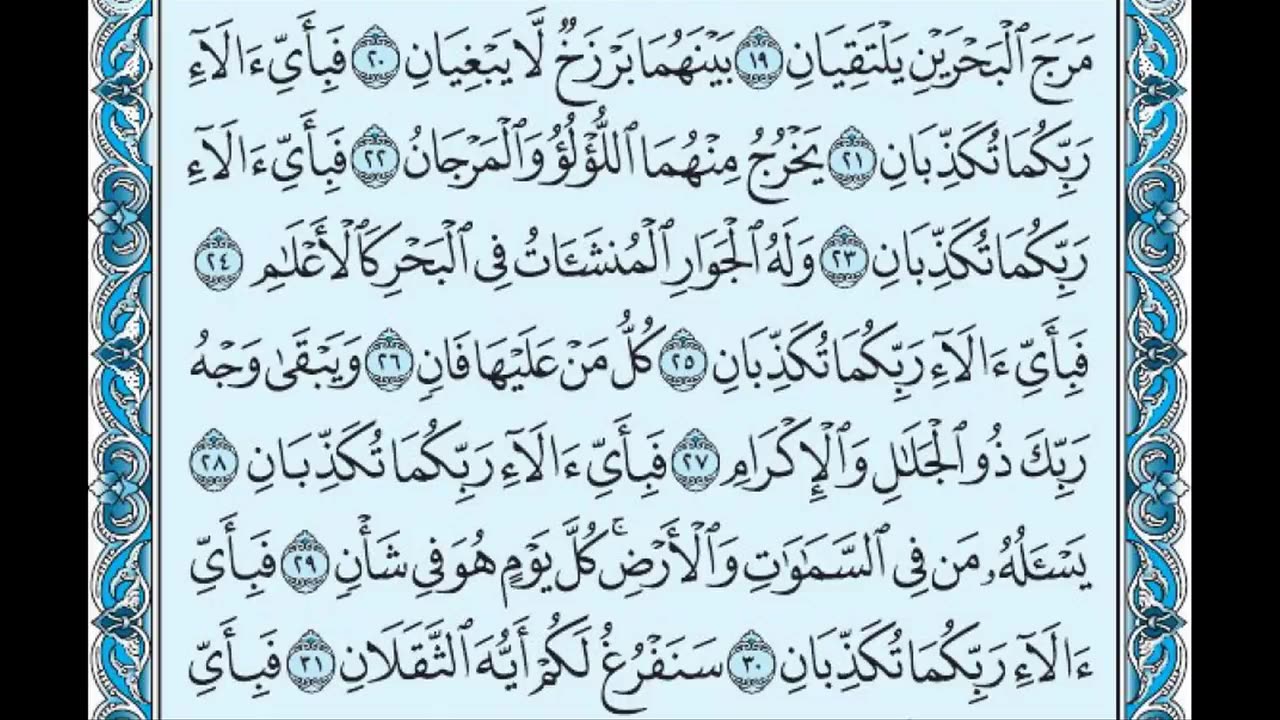 مَرَجَ ٱلْبَحْرَيْنِ يَلْتَقِيَانِ ١٩ بَيْنَهُمَا بَرْزَخٌ لَّا يَبْغِيَانِ ٢٠ فَبِأَيِّ ءَالَآءِ
رَبِّكُمَا تُكَذِّبَانِ ٢١ يَخْرُجُ مِنْهُمَا ٱللُّؤْلُؤُ وَٱلْمَرْجَانُ ٢٢ فَبِأَيِّ ءَالَآءِ
رَبِّكُمَا تُكَذِّبَانِ ٢٣ وَلَهُ ٱلْجَوَارِ ٱلْمُنشَـَٔاتُ فِي ٱلْبَحْرِ كَٱلْأَعْلَـٰمِ ٢٤
فَبِأَيِّ ءَالَآءِ رَبِّكُمَا تُكَذِّبَانِ ٢٥ كُلُّ مَنْ عَلَيْهَا فَانٍ ٢٦ وَيَبْقَىٰ وَجْهُ
رَبِّكَ ذُو ٱلْجَلَـٰلِ وَٱلْإِكْرَامِ ٢٧ فَبِأَيِّ ءَالَآءِ رَبِّكُمَا تُكَذِّبَانِ ٢٨
يَسْـَٔلُهُۥ مَن فِي ٱلسَّمَـٰوَٰتِ وَٱلْأَرْضِ ۚ كُلَّ يَوْمٍ هُوَ فِي شَأْنٍ ٢٩ فَبِأَيِّ
ءَالَآءِ رَبِّكُمَا تُكَذِّبَانِ ٣٠ سَنَفْرُغُ لَكُمْ أَيُّهَ ٱلثَّقَلَانِ ٣١ فَبِأَيِّ